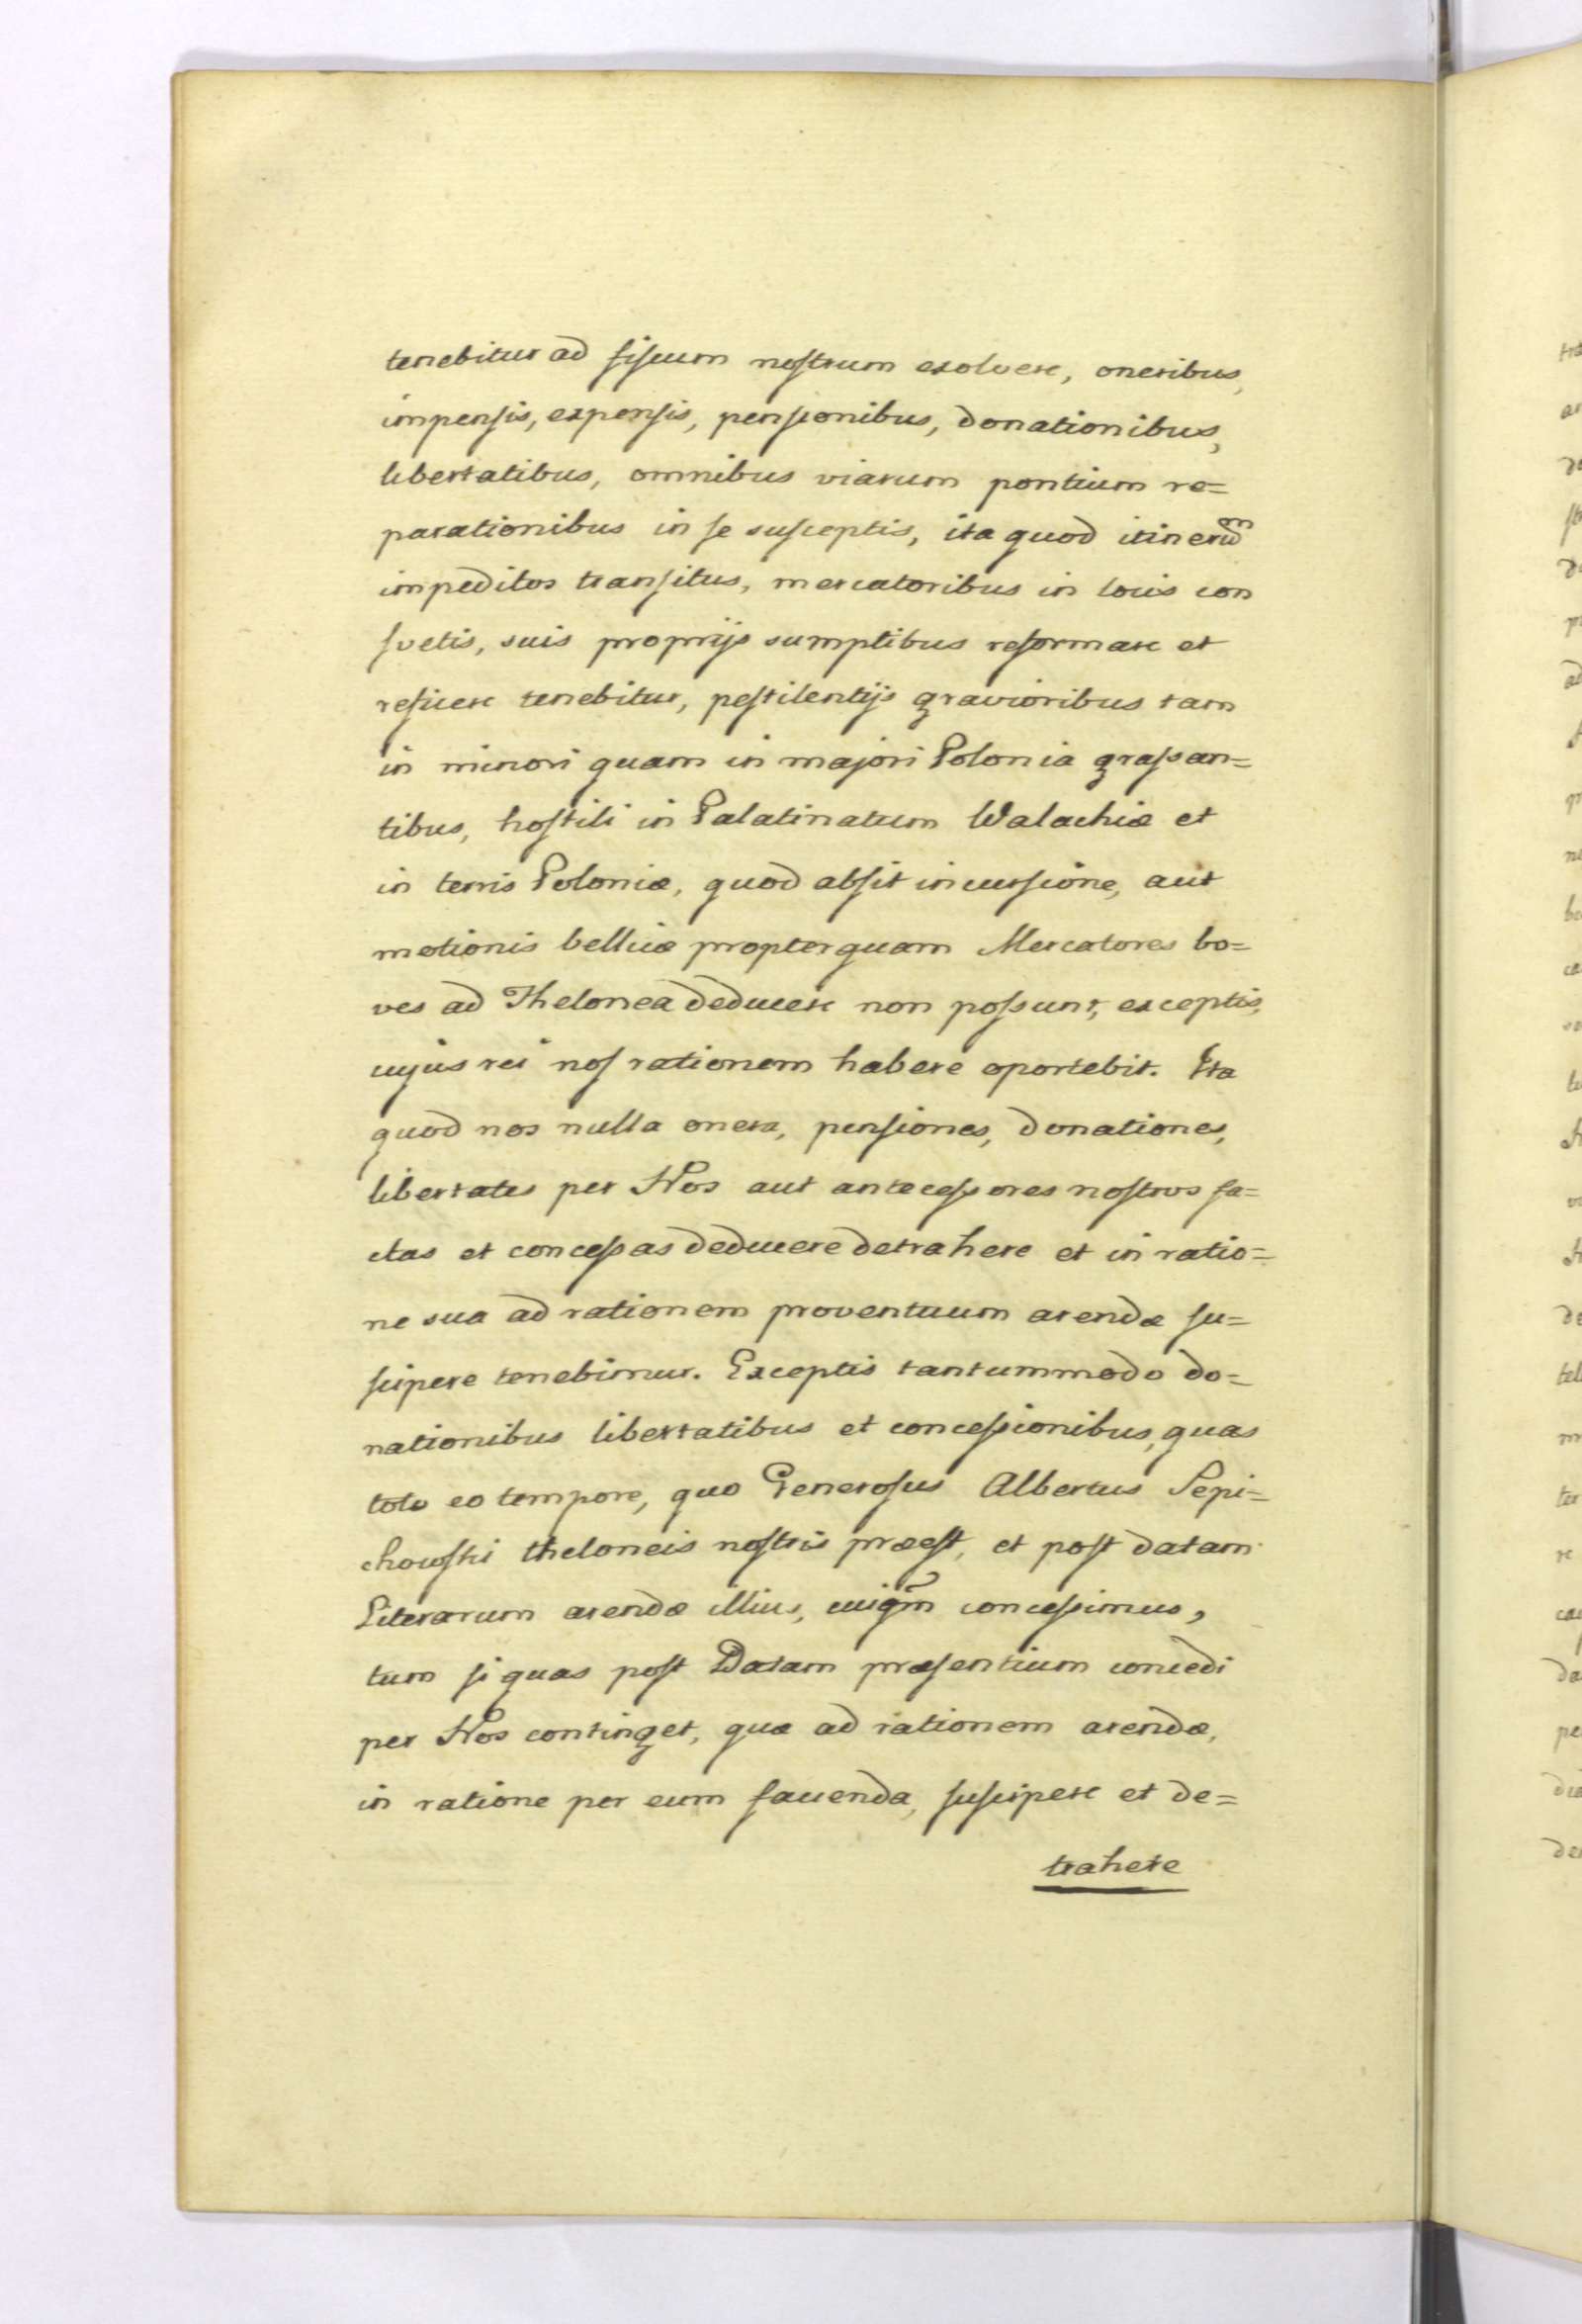 tenebitur ad fiscum nostrum exolvere, oneribus,
impensis, expensis, pensionibus, donationibus,
libertatibus, omnibus viarum pontium re=
parationibus in se susceptis, ita quod itinerum
impeditos transitus, mercatoribus in locis con
svetis, suis proprijs sumptibus reformare et
reficere tenebitur, pestilentijs gravioribus tam
in minori quam in majori Polonia grassan=
tibus, hostili in Palatinatum Walachiæ et
in terris Poloniæ, quod absit incursione, aut
motionis bellicæ propterquam Mercatores bo=
ves ad Thelonea deducere non possunt, exceptis,
cujus rei nos rationem habere oportebit. Ita
quod nos nulla onera, pensiones, donationes,
libertates per Nos aut antecessores nostros fa=
ctas et concessas deducere detrahere et in ratio=
ne sua ad rationem proventuum arendæ su=
scipere tenebimur. Exceptis tantummodo do=
nationibus libertatibus et concessionibus, quas
toto eo tempore, quo Generosus Albertus Sepi=
chowski theloneis nostris præest, et post datam
Literarum arendæ illius, cuiqm̃ concessimus,
tum si quas post Datam præsentium concedi
per Nos continget, quæ ad rationem arendæ,
in ratione per eum favenda, suscipere et de=
trahere